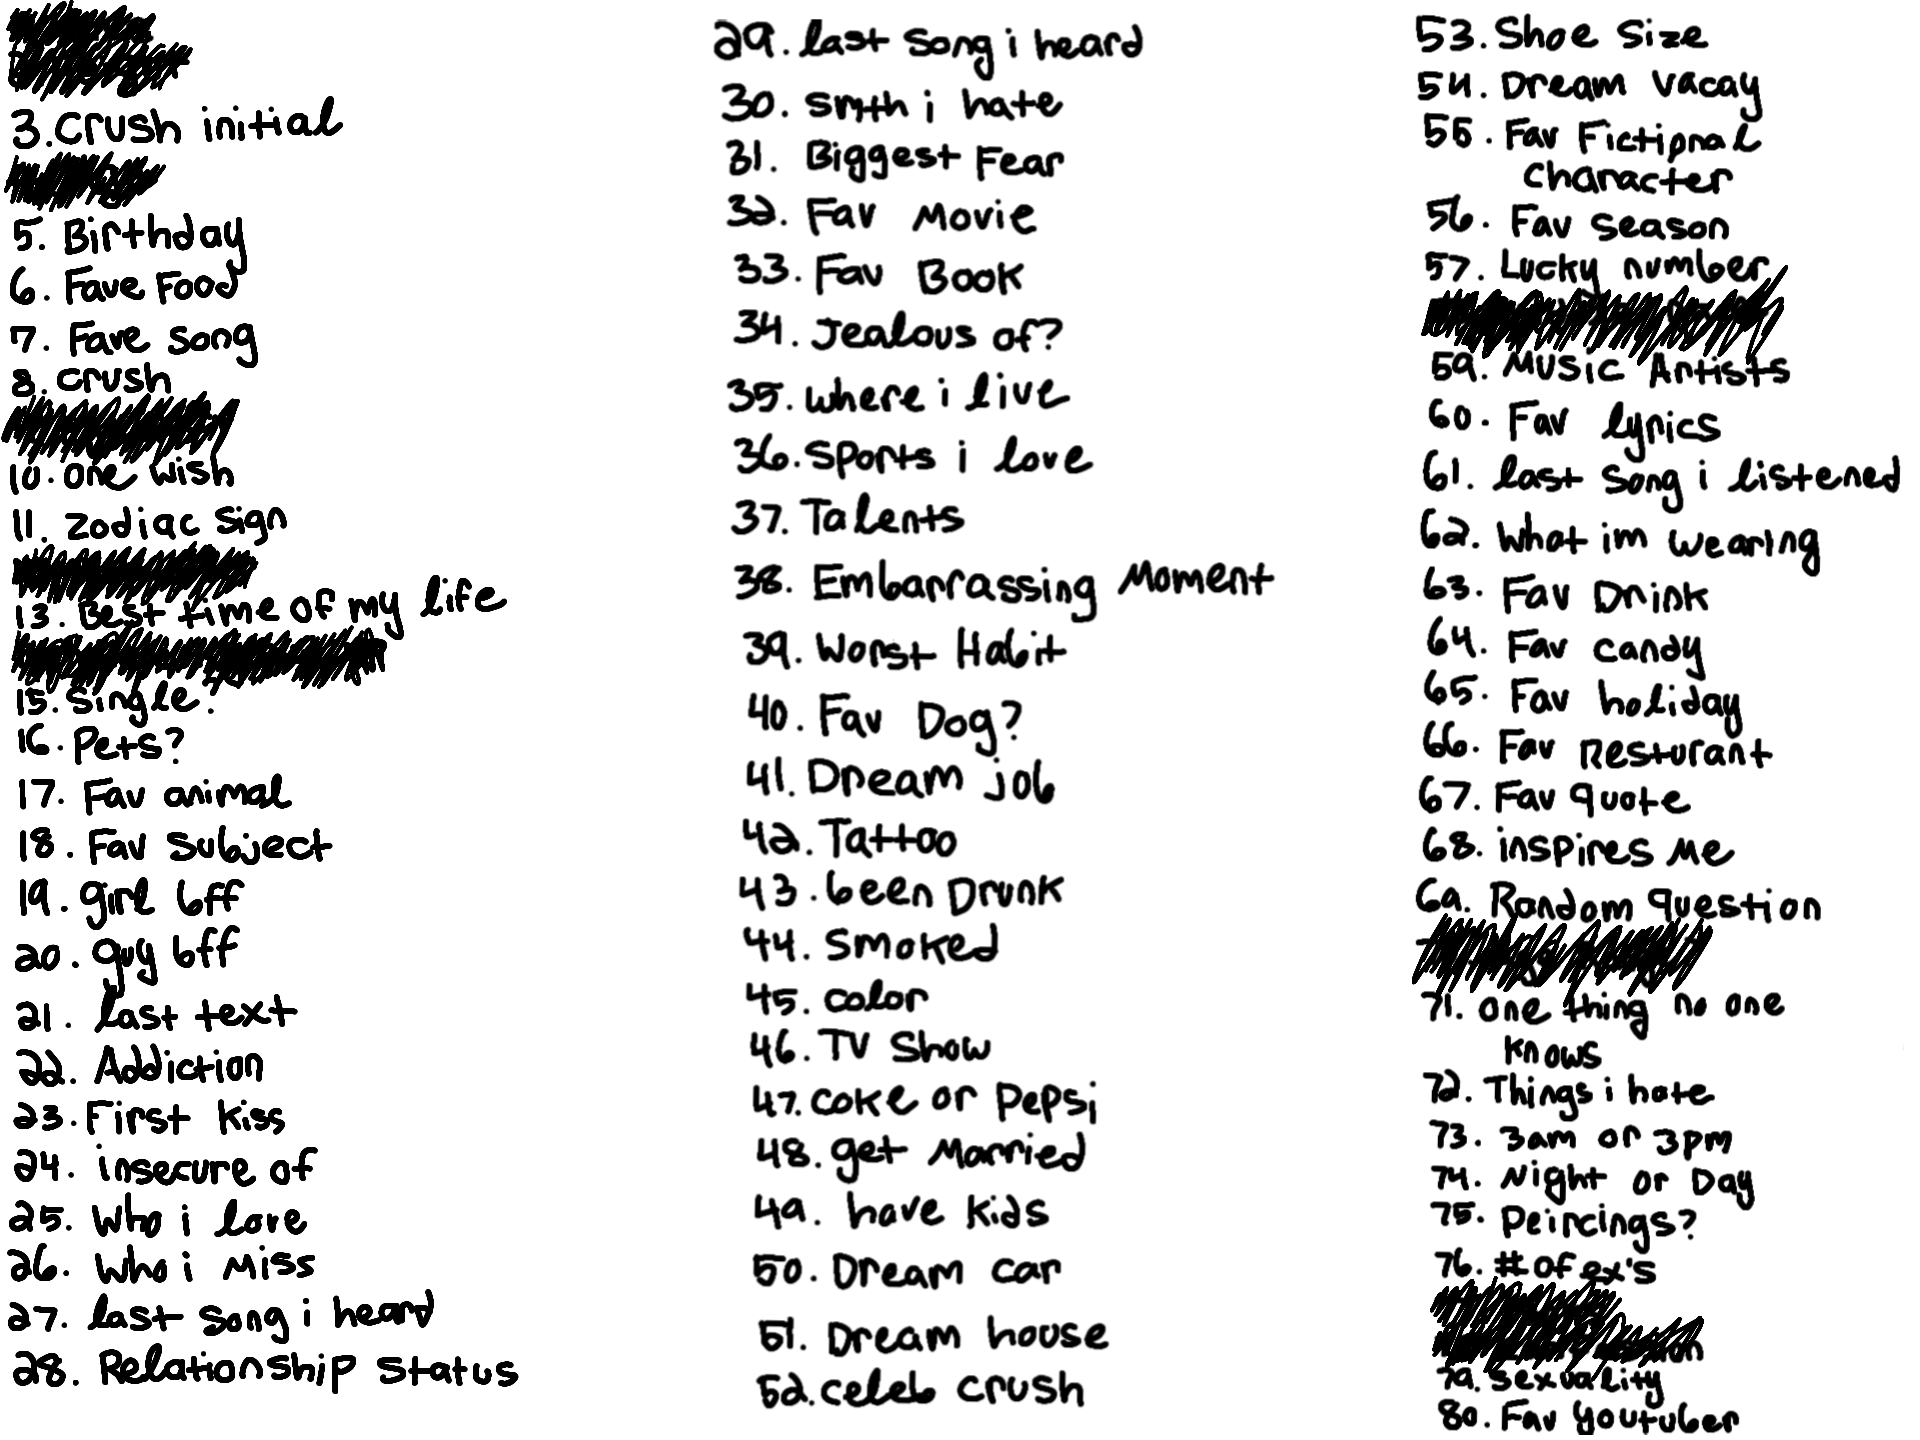 3. Crush initial
5. Birthday
6. Fave Food
7. Fave song
8. crush
10. one wish
11. zodiac sign
13. Best time of my life
15. single?
16. Pets?
17. Fav animal
18. Fav subject
19. girl bff
20. guy bff
21. last text
22. Addiction
23. First kiss
24. insecure of
25. Who i love
26. Who i Miss
27. last song i heard
28. Relationship Status
29. last song i heard
30. smth i hate
31. Biggest Fear
32. Fav Movie
33. Fav Book
34. Jealous of?
35. where i live
36. Sports i love
37. Talents
38. Embarrassing Moment
39. Worst Habit
40. Fav Dog?
41. Dream job
42. Tattoo
43. been Drunk
44. Smoked
45. color
46. TV Show
47. coke or Pepsi
48. get Married
49. have kids
50. Dream car
51. Dream house
52. celeb crush
53. Shoe Size
54. Dream vacay
55. Fav Fictional
character
56. Fav season
57. Lucky number
59. Music Artists
60. Fav lyrics
61. last song i listened
62. What im wearing
63. Fav Drink
64. Fav candy
65. Fav holiday
66. Fav Resturant
67. Fav quote
68. inspires Me
69. Random question
71. one thing no one
knows
72. Things i hate
73. 3am or 3pm
74. Night or Day
75. Peircings?
76. # of ex's
79. sexuality
80. Fav youtuber